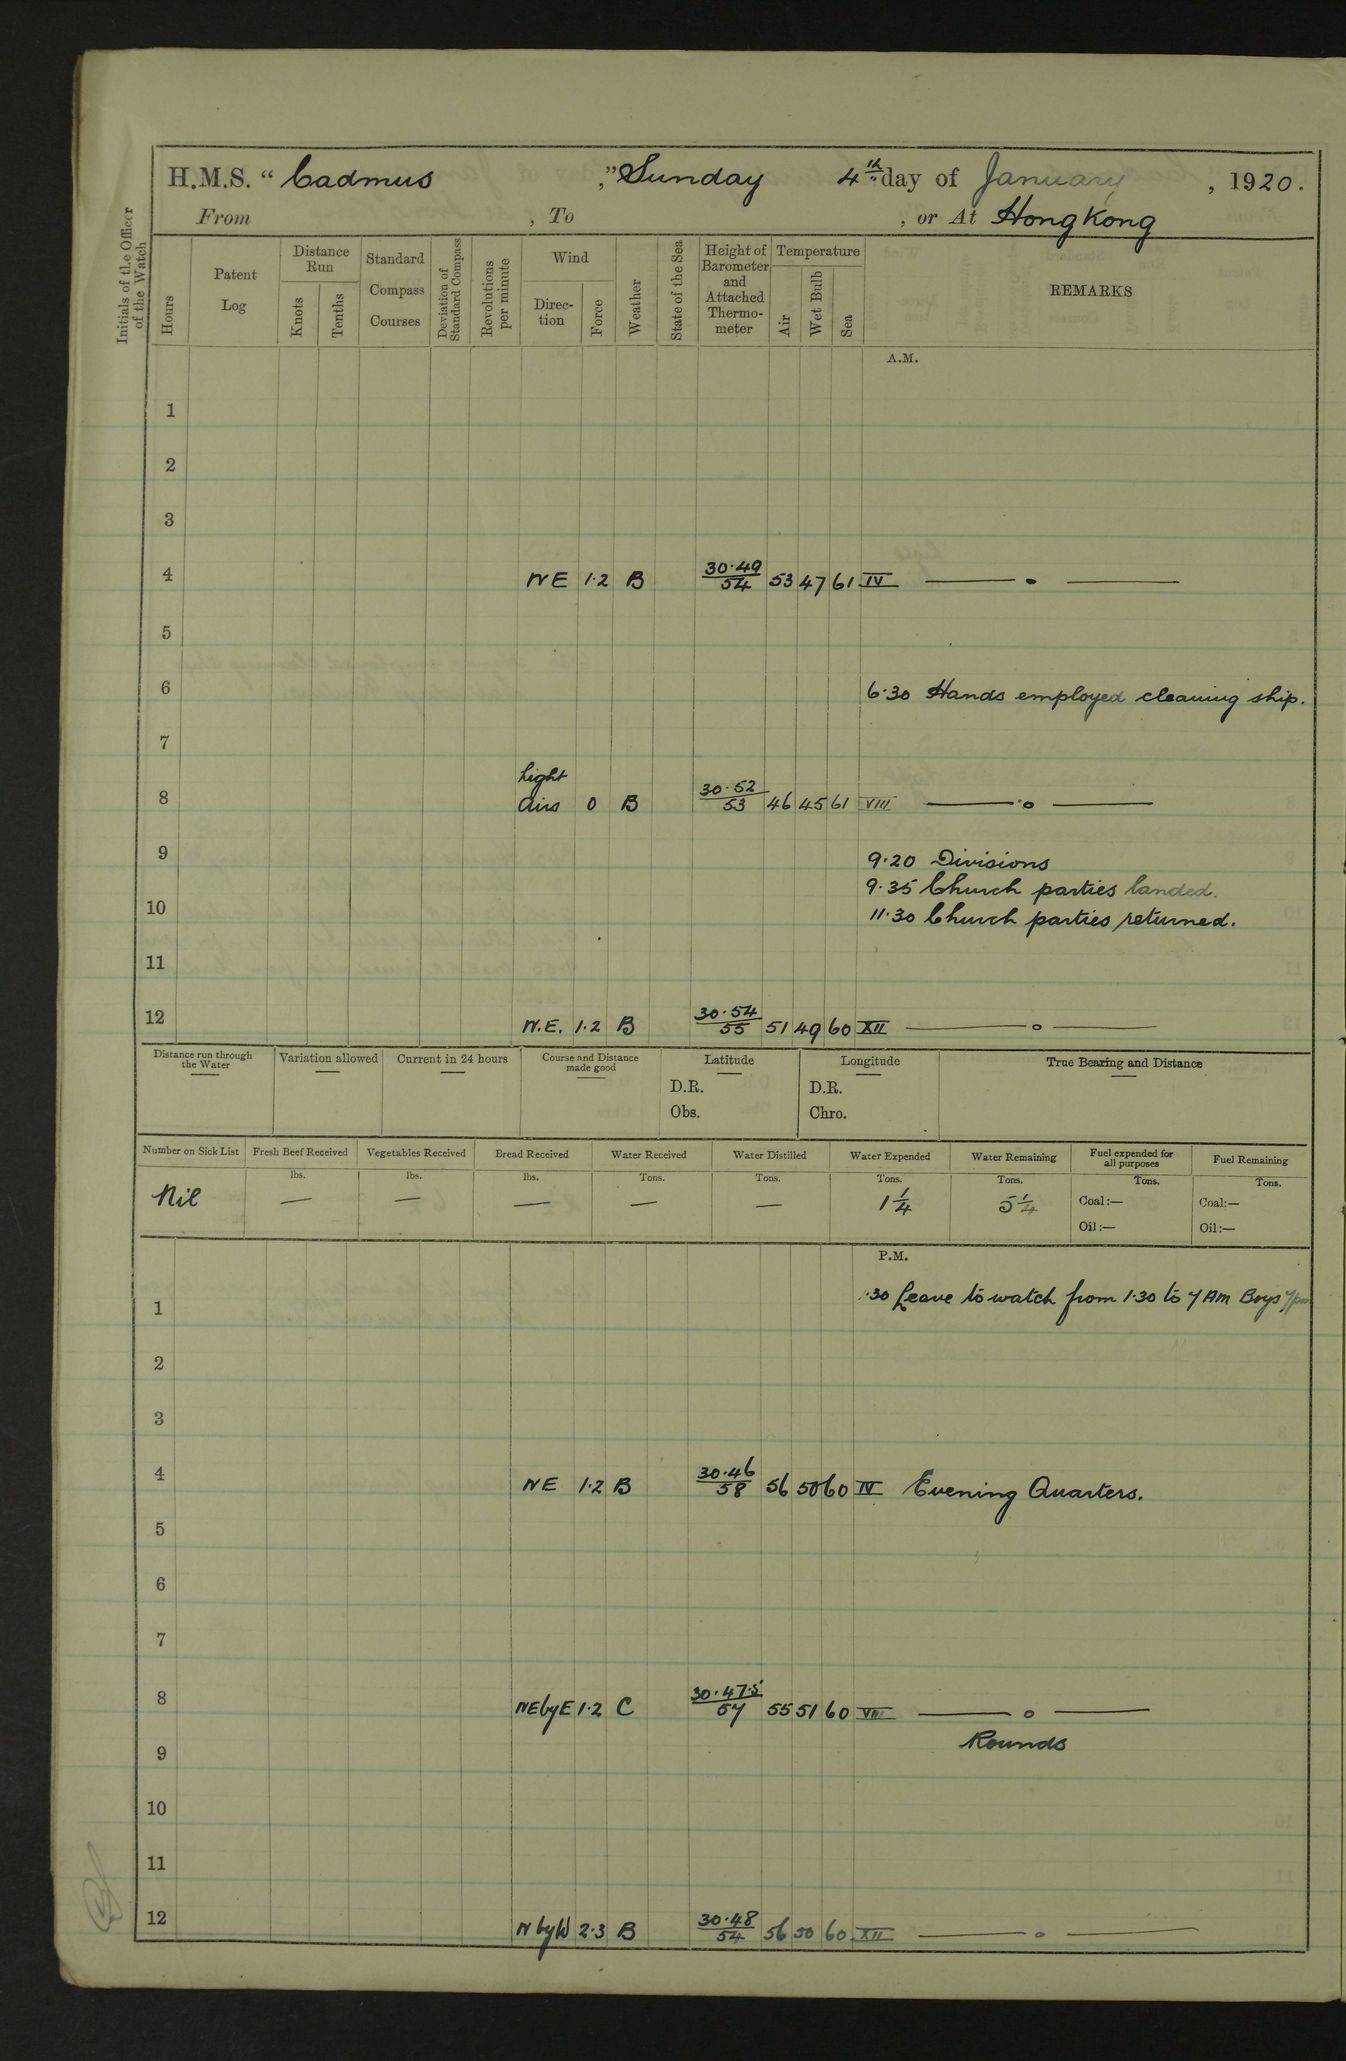 H.M.S. "Cadmus," Sunday 4th day of January, 1920.
From , To , or At Hong Kong
Initials of the Officer of the Watch
Hours
Patent Log
Distance Run
Knots
Tenths
Standard Compass Courses
Deviation of Standard Compass
Revolutions per minute
Wind
Direction
Force
Weather
State of the Sea
Height of Barometer and Attached Thermometer
Temperature
Air
Wet Bulb
Sea
REMARKS
A.M.
1
2
3
4 NE 1.2 B 30.49/54 53 47 61 IV — o —
5
6 6.30 Hands employed cleaning ship.
7
8 Light Airs 0 B 30.52/53 46 45 61 VIII — o —
9 9.20 Divisions
9.35 Church parties landed.
10 11.30 Church parties returned.
11
12 N.E. 1.2 B 30.54/55 51 49 60 XII — o —
Distance run through the Water
Variation allowed
Current in 24 hours
Course and Distance made good
Latitude
D.R.
Obs.
Longitude
D.R.
Chro.
True Bearing and Distance
Number on Sick List
Nil
Fresh Beef Received
lbs.
—
Vegetables Received
lbs.
—
Bread Received
lbs.
—
Water Received
Tons.
—
Water Distilled
Tons.
—
Water Expended
Tons.
1¼
Water Remaining
Tons.
5¼
Fuel expended for all purposes
Tons.
Coal:—
Oil:—
Fuel Remaining
Tons.
Coal:—
Oil:—
P.M.
1 .30 Leave to watch from 1.30 to 7 AM Boys 7pm
2
3
4 NE 1.2 B 30.46/58 56 50 60 IV Evening Quarters.
5
6
7
8 NEbyE 1.2 C 30.47.5/57 55 51 60 VIII — o —
9 Rounds
10
11
12 NbyW 2.3 B 30.48/54 56 50 60 XII — o —